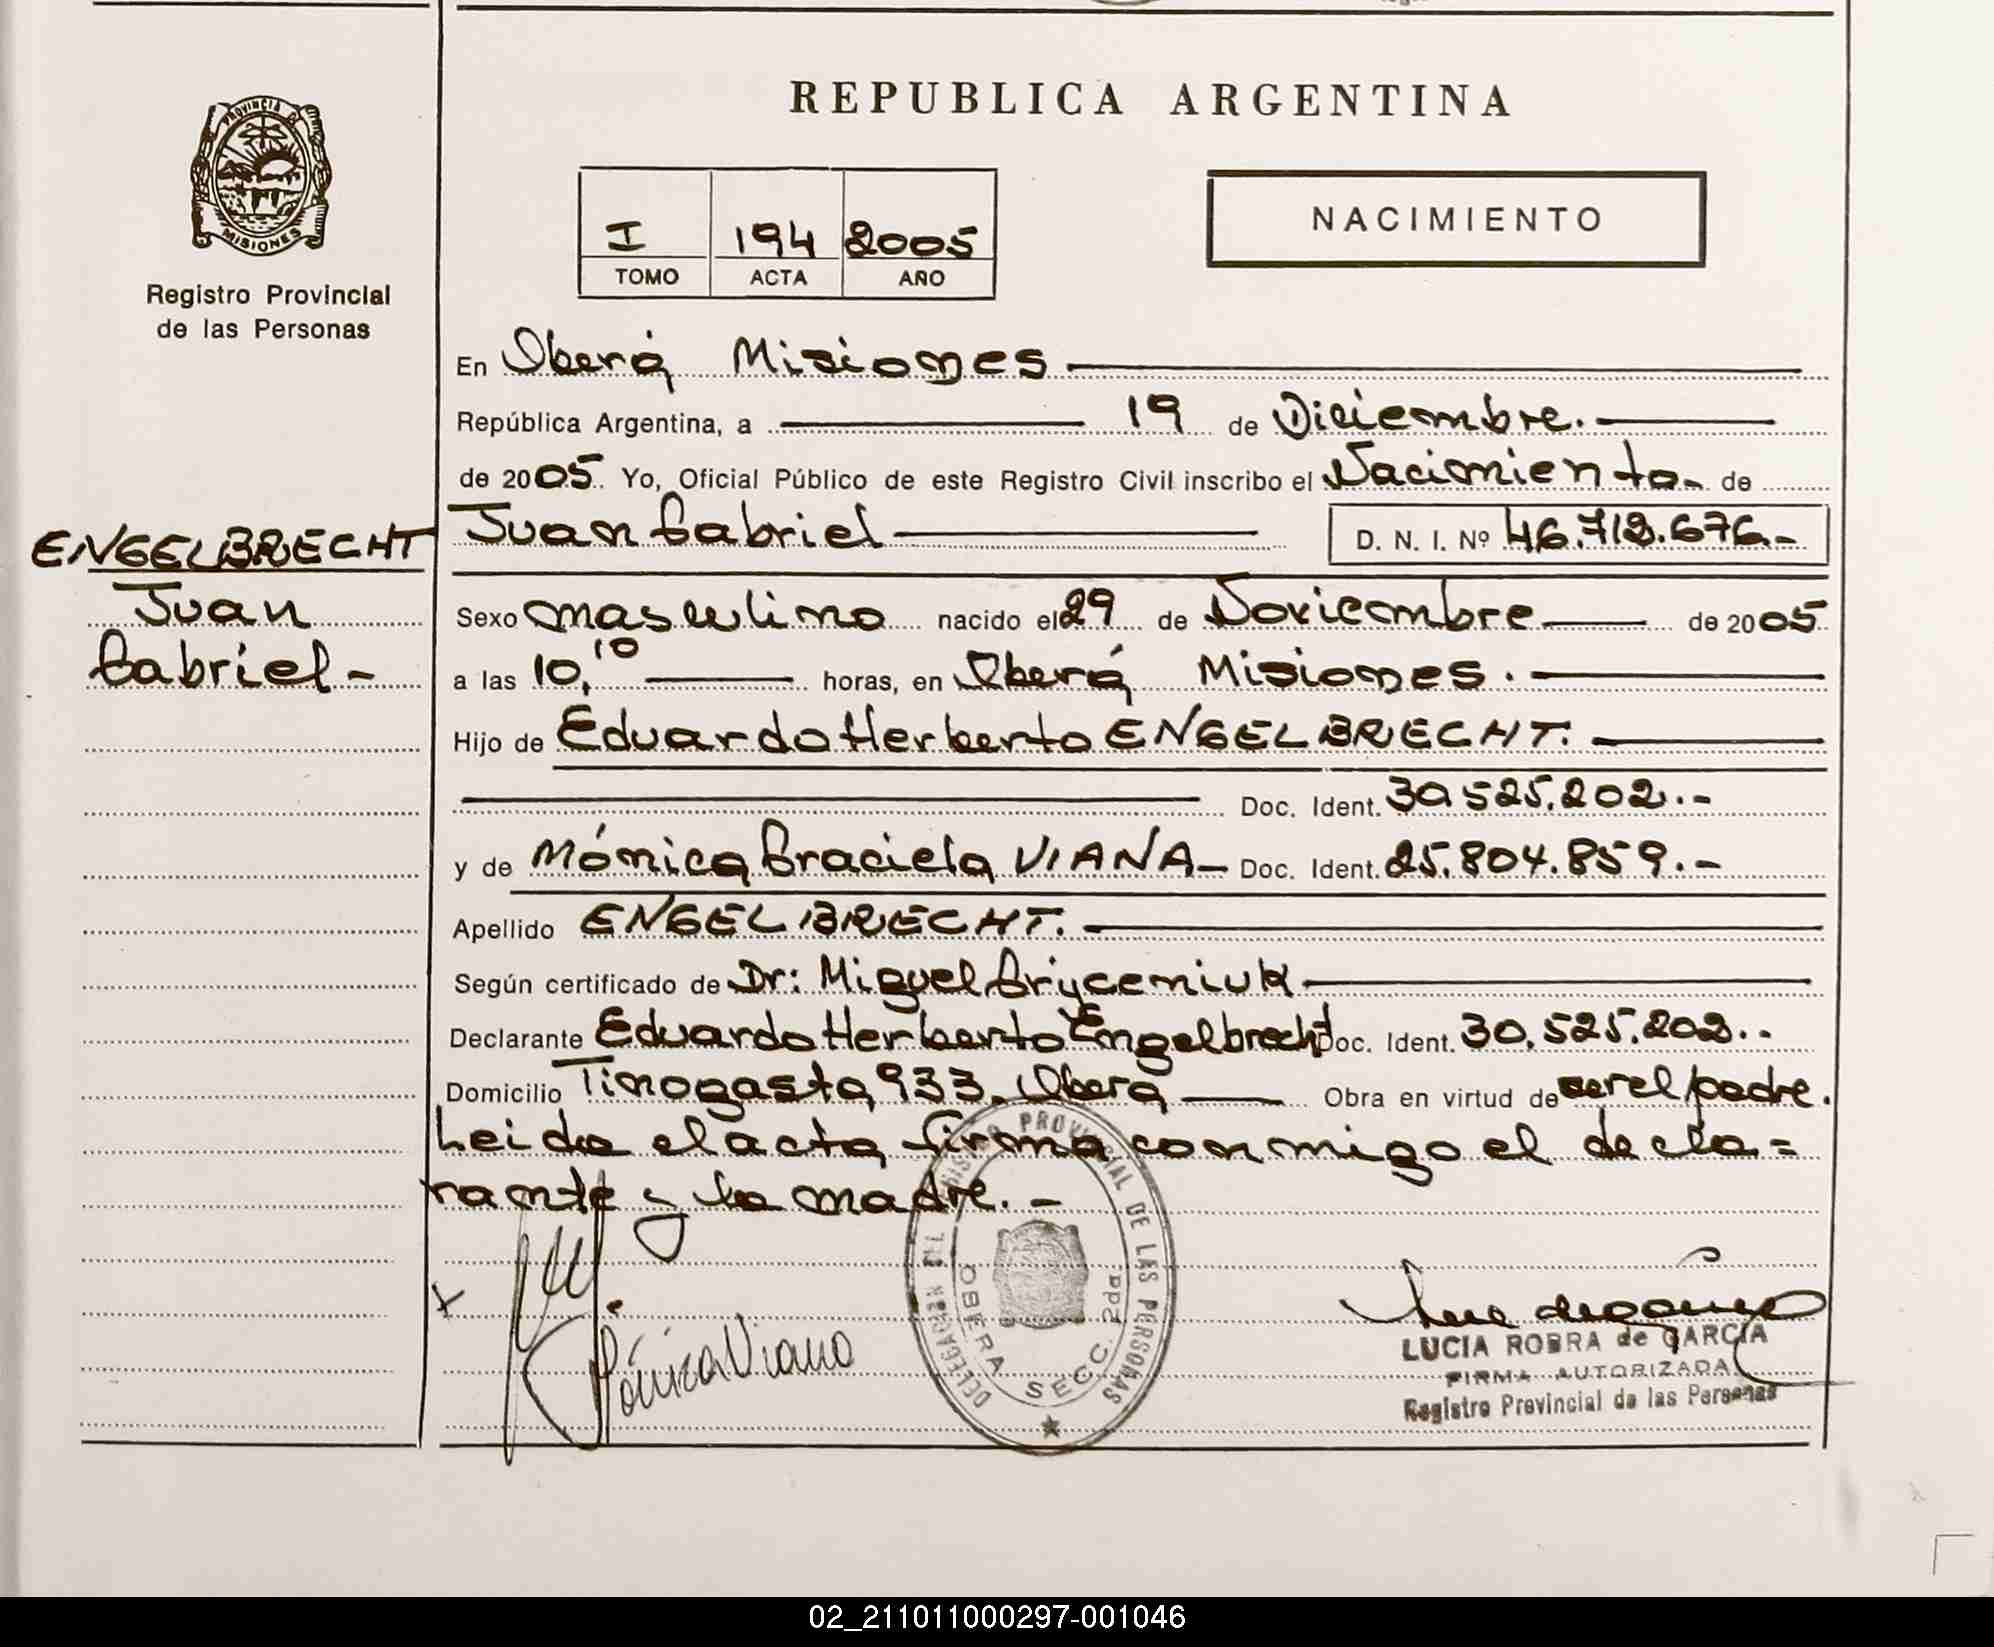 REPUBLICA ARGENTINA
PROVINCIA DE
MISIONES
Registro Provincial
de las Personas
I 194 2005
TOMO ACTA AÑO
NACIMIENTO
En Oberá Misiones
República Argentina, a 19 de Diciembre.
de 2005. Yo, Oficial Público de este Registro Civil inscribo el Nacimiento de
ENGELBRECHT
Juan
Gabriel-
Juan Gabriel D. N. I. Nº 46.712.676.-
Sexo masculino nacido el 29 de Noviembre de 2005
a las 10,10 horas, en Oberá Misiones.
Hijo de Eduardo Herberto ENGELBRECHT.
Doc. Ident. 30.525.202.-
y de Mónica Graciela VIANA- Doc. Ident. 25.804.859.-
Apellido ENGELBRECHT.
Según certificado de Dr: Miguel Gryceniuk
Declarante Eduardo Herberto Engelbrecht Doc. Ident. 30.525.202..
Domicilio Tinogasta 933. Oberá Obra en virtud de ser el padre.
Leida el acta firma conmigo el decla=
rante y la madre.-
Mónica Viana
DELEGACION DEL REGISTRO PROVINCIAL DE LAS PERSONAS
OBERA SECC. 2da
LUCIA ROBRA de GARCIA
FIRMA AUTORIZADA
Registro Provincial de las Personas
02_211011000297-001046